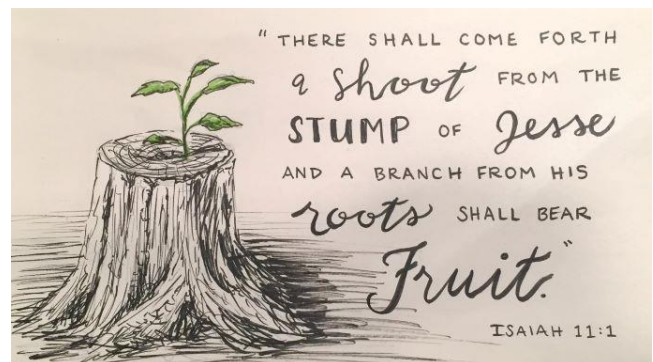 "THERE SHALL COME FORTH
a Shoot FROM THE
STUMP OF Jesse
AND A BRANCH FROM HIS
roots SHALL BEAR
Fruit."
ISAIAH 11:1